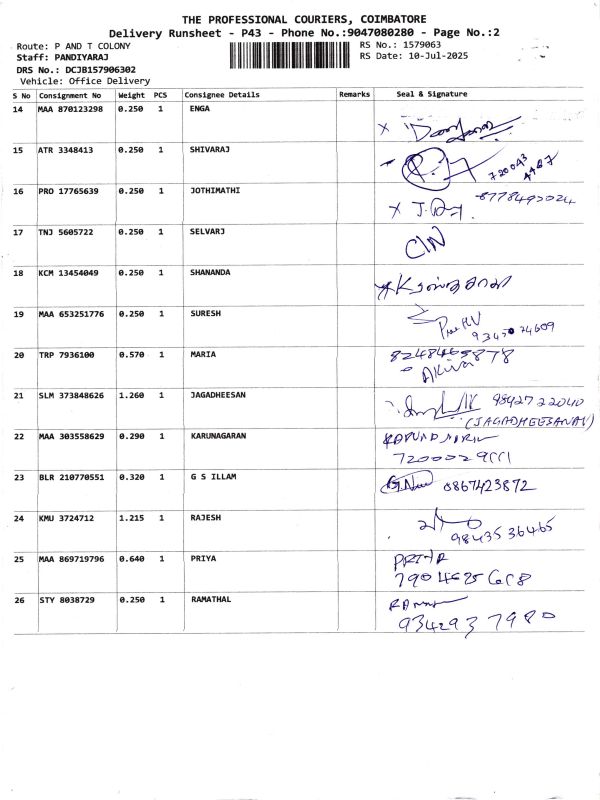 THE PROFESSIONAL COURIERS, COIMBATORE
Delivery Runsheet - P43 - Phone No.:9047080280 - Page No.:2
Route: P AND T COLONY
RS No.: 1579063
Staff: PANDIYARAJ
RS Date: 10-Jul-2025
DRS No.: DCJB157906302
Vehicle: Office Delivery
S No Consignment No Weight PCS Consignee Details Remarks Seal & Signature
14 MAA 870123298 0.250 1 ENGA
15 ATR 3348413 0.250 1 SHIVARAJ
720043
4467
16 PRO 17765639 0.250 1 JOTHIMATHI
8778493024
17 TNJ 5605722 0.250 1 SELVARJ
18 KCM 13454049 0.250 1 SHANANDA
19 MAA 653251776 0.250 1 SURESH
9345074609
20 TRP 7936100 0.570 1 MARIA
8248465878
21 SLM 373848626 1.260 1 JAGADHEESAN 9842722040
(JAGADHEESANAV)
22 MAA 303558629 0.290 1 KARUNAGARAN
7200029111
23 BLR 210770551 0.320 1 G S ILLAM 8867423872
24 KMU 3724712 1.215 1 RAJESH
9843536465
25 MAA 869719796 0.640 1 PRIYA PRIYA
7904625618
26 STY 8038729 0.250 1 RAMATHAL
9342937980